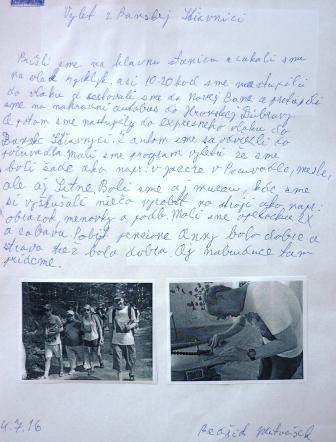 Výlet z Banskej Štiavnici
Prišli sme na hlavnu stanicu a čakali sme
na vlak asi 10:20 kod sme nastupili
do vlaku a cestovali sme do Novej Bane a prestupili
sme na nahradni autobus do Hronskej Dúbravy
a potom sme nastupily do expresneho vlaku do
Banske Štiavnyci. Z autom sme sa doviezli do
počuvadla. Mali sme program výletu že sme
boli sade ako napr: v jazere v Počuvadle, meste,
ale aj Sitne. Boli sme aj muzeu, kde sme
si vyskušali niečo vyrobit na stroji ako napr:
obrazok, menovky a podb. Mali sme opekačku 2X
a zabava. Pobyt penzione Anny bolo dobre a
strava tiež bola dobra. Aj nabuduce tam
prideme.
4.7.16